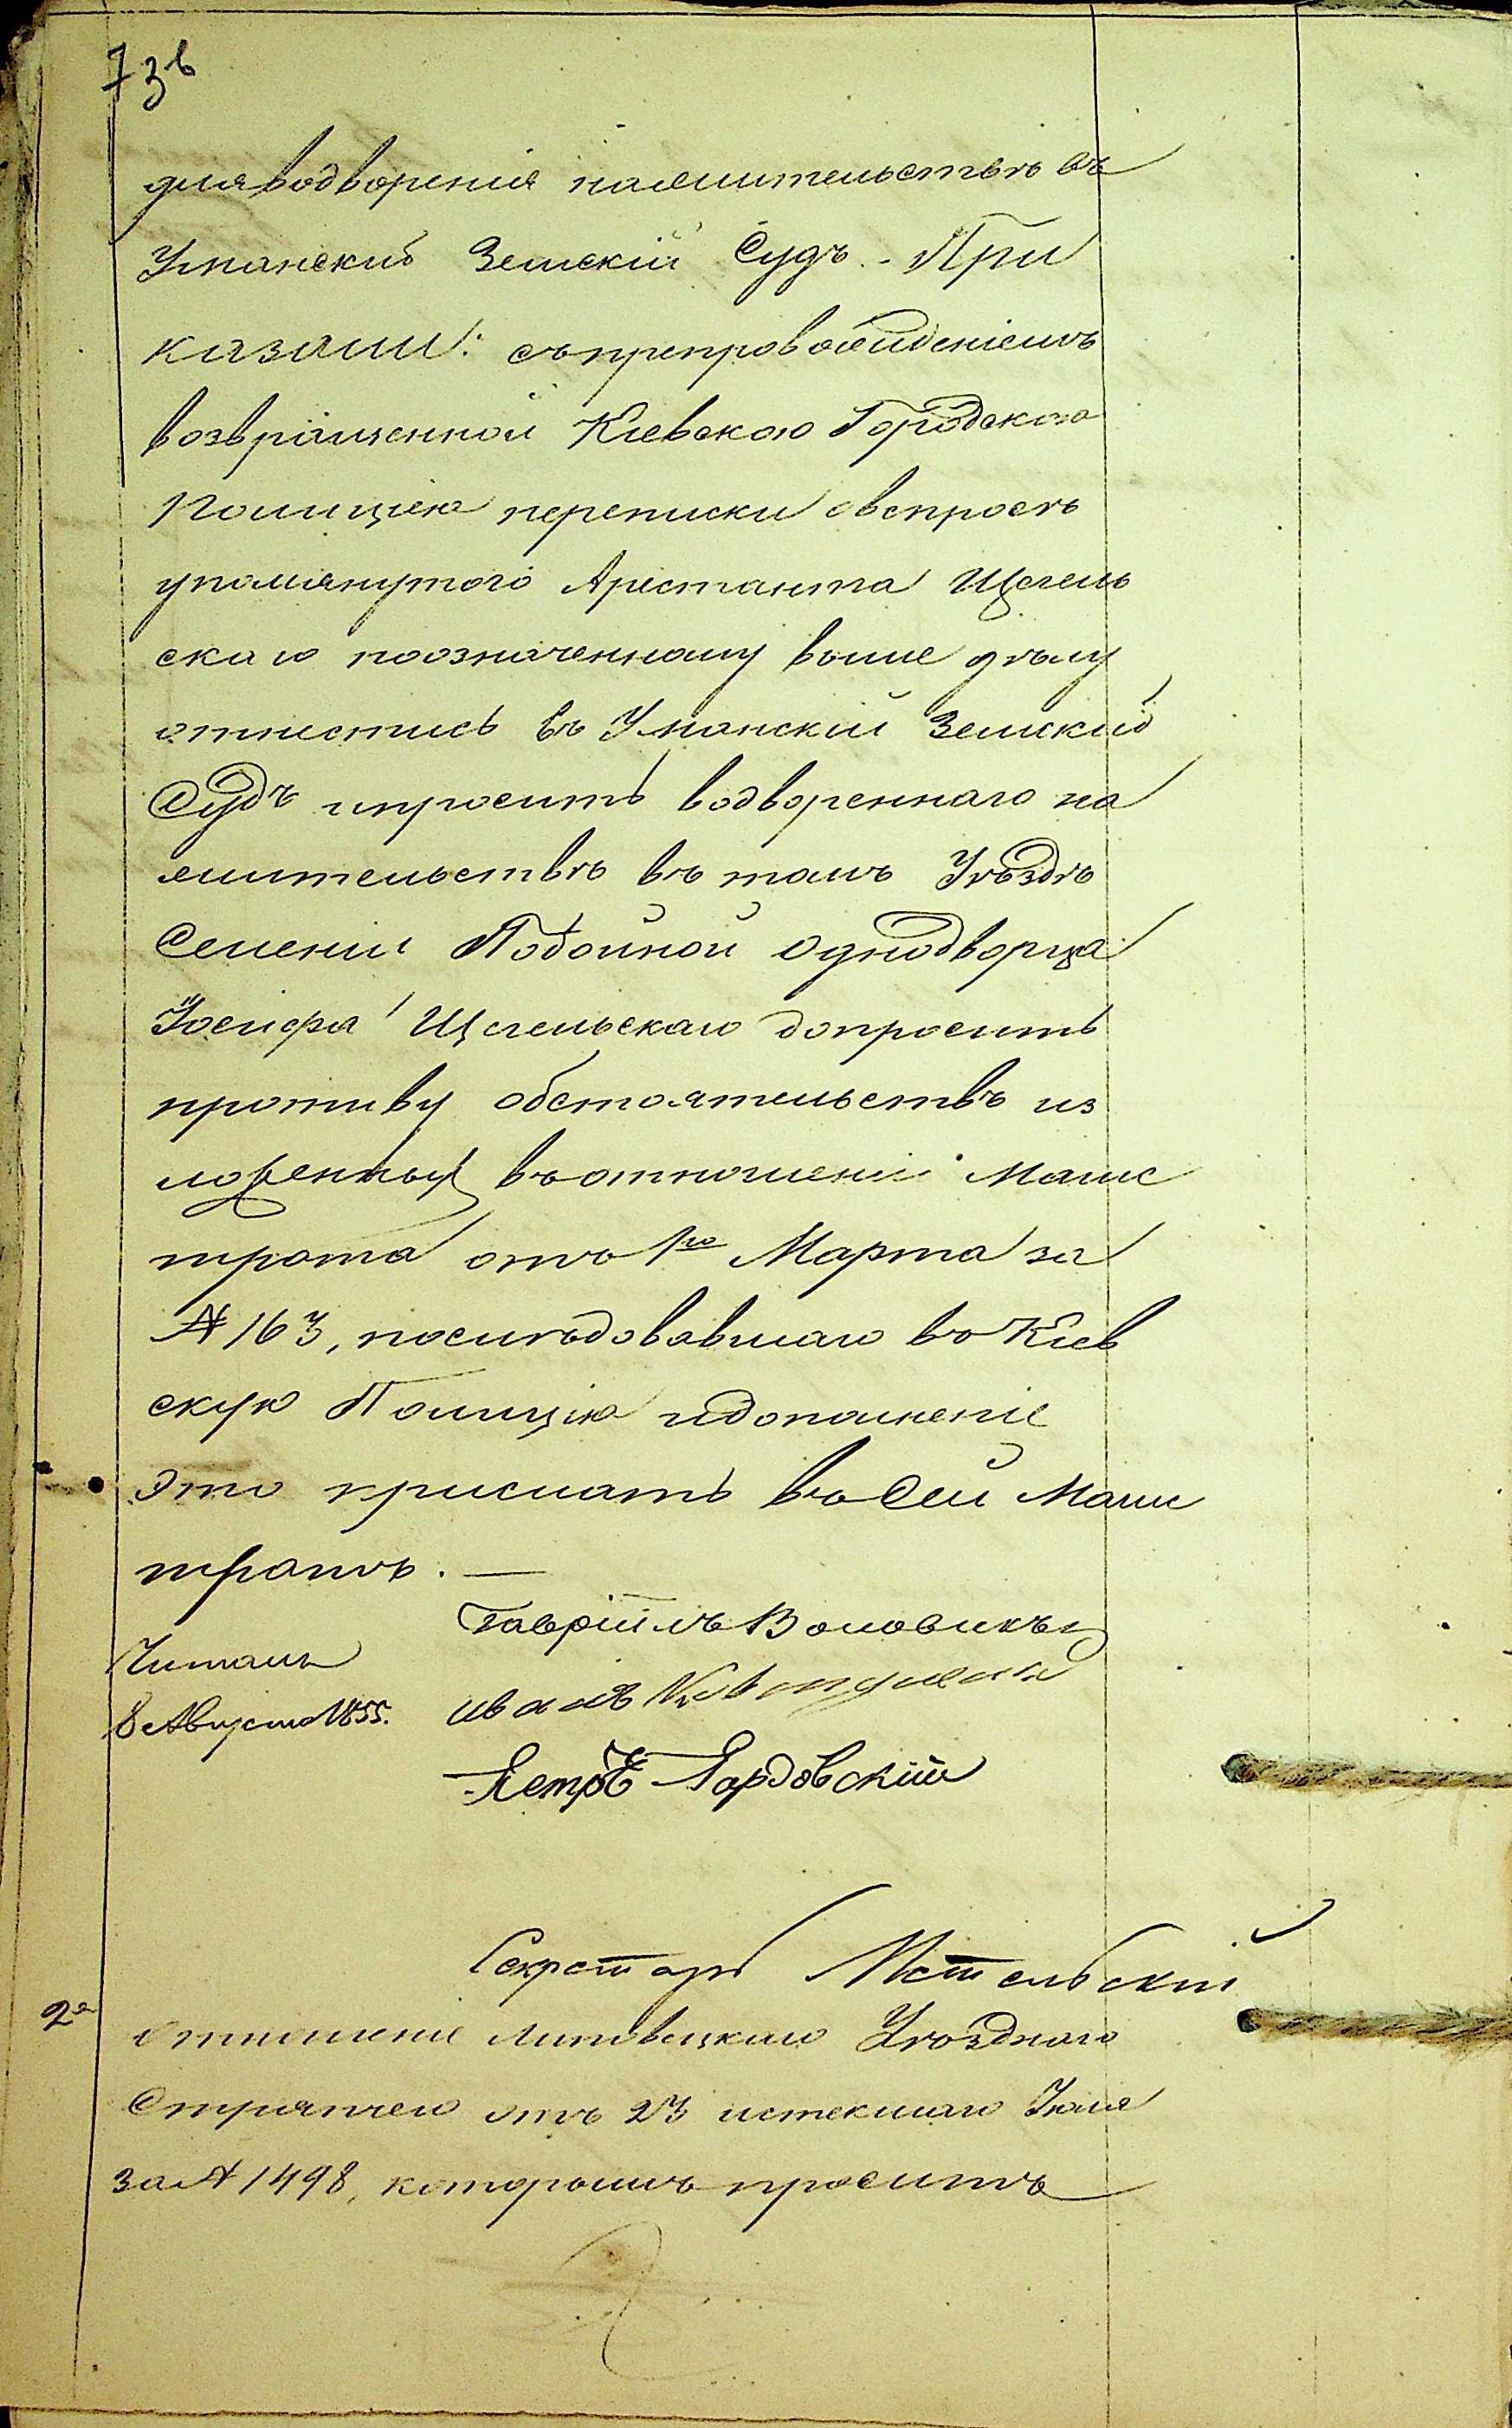 73 в
для водворенія на жительствѣ въ
Уманскій Земскій Судъ. - При
казали: съ препровожденіемъ
возвращенной Кіевскою Городскою
Полиціею переписки о вспросѣ
упомянутого Арестанта Щегель
скаго по означенному выше дѣлу
отнестись въ Уманскій Земский
Судъ и просить водвореннаго на
жительствѣ въ томъ Уѣздѣ
Селеніи Побойной однодворца
Іосифа Щегельскаго допросить
противу обстоятельствъ из
ложенных въ отношеніи Магис
трата отъ 1го Марта за
№ 163, послѣдовавшаго въ Кіев
скую Полицію и дополненіе
это прислать въ Сей Магис
тратъ. —
Гавріилъ Воловикъ
Читалъ
8 Августа 1855. иванъ
Петръ Гордовскій
Секретарь
2е
отношеніе Липовецкаго Уѣзднаго
Стряпчего отъ 23 истекшаго Іюля
за № 1498, которымъ проситъ